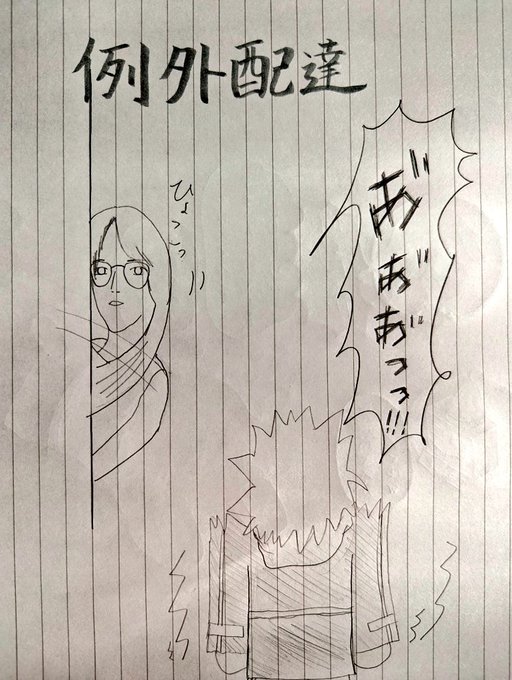 例外配達
あ゛あ゛あ゛っっ!!!
ひょこっ